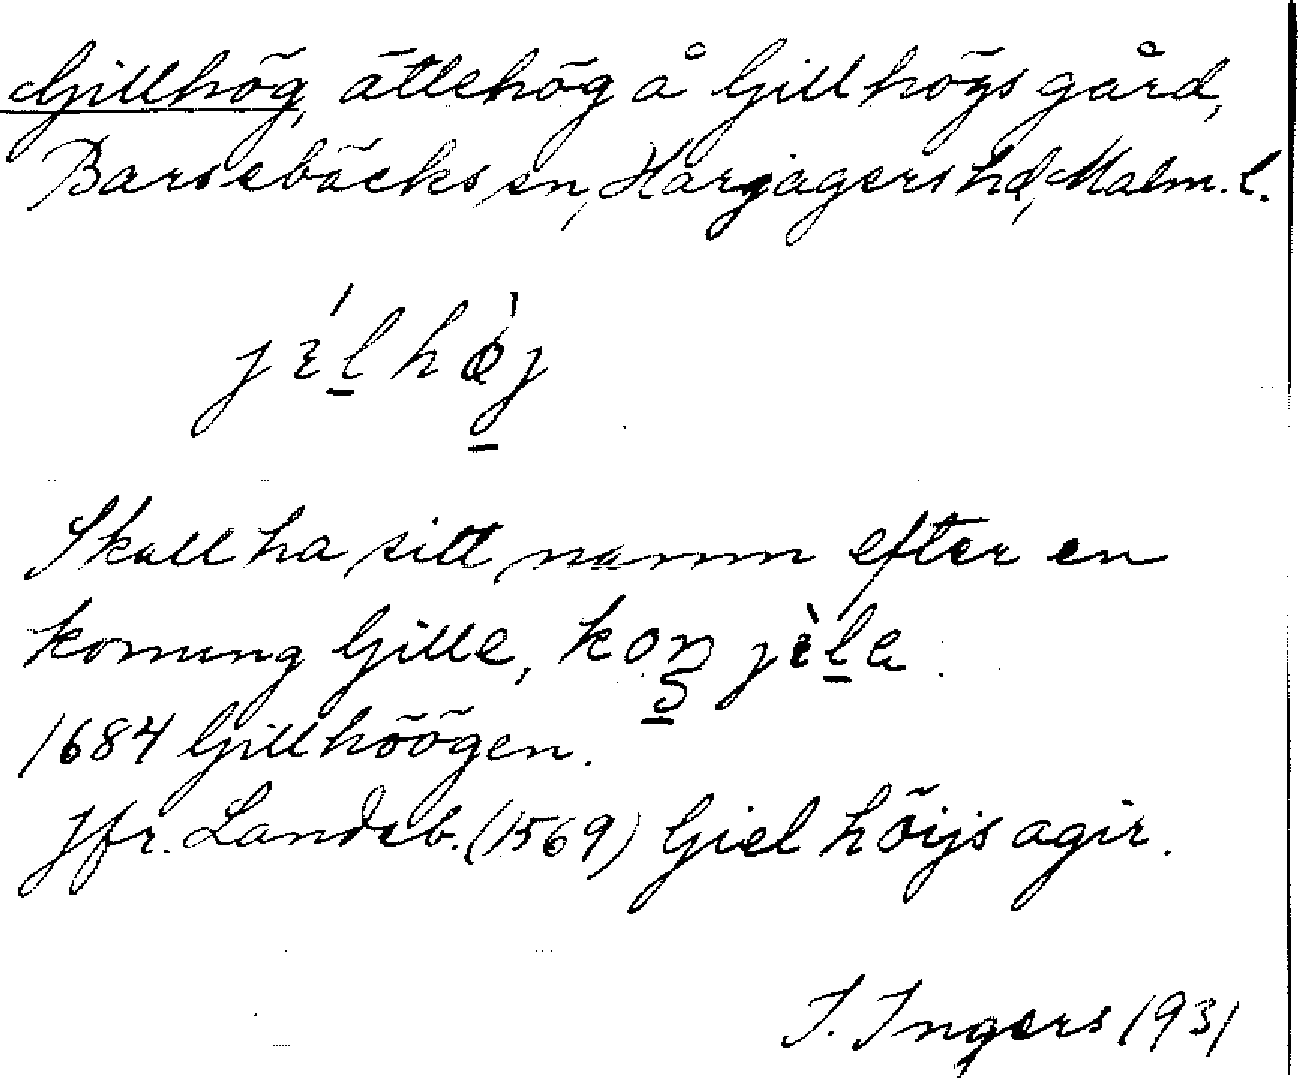 Gillhög, ättehög å Gillhögs gård,
Barsebäcks sn, Harjagers hd, Malm. l.
Skall ha sitt namn efter en
konung Gille,
1684 Gillhöögen.
Jfr. Landeb. (1569) Giel höijs agir.
I. Ingers 1931